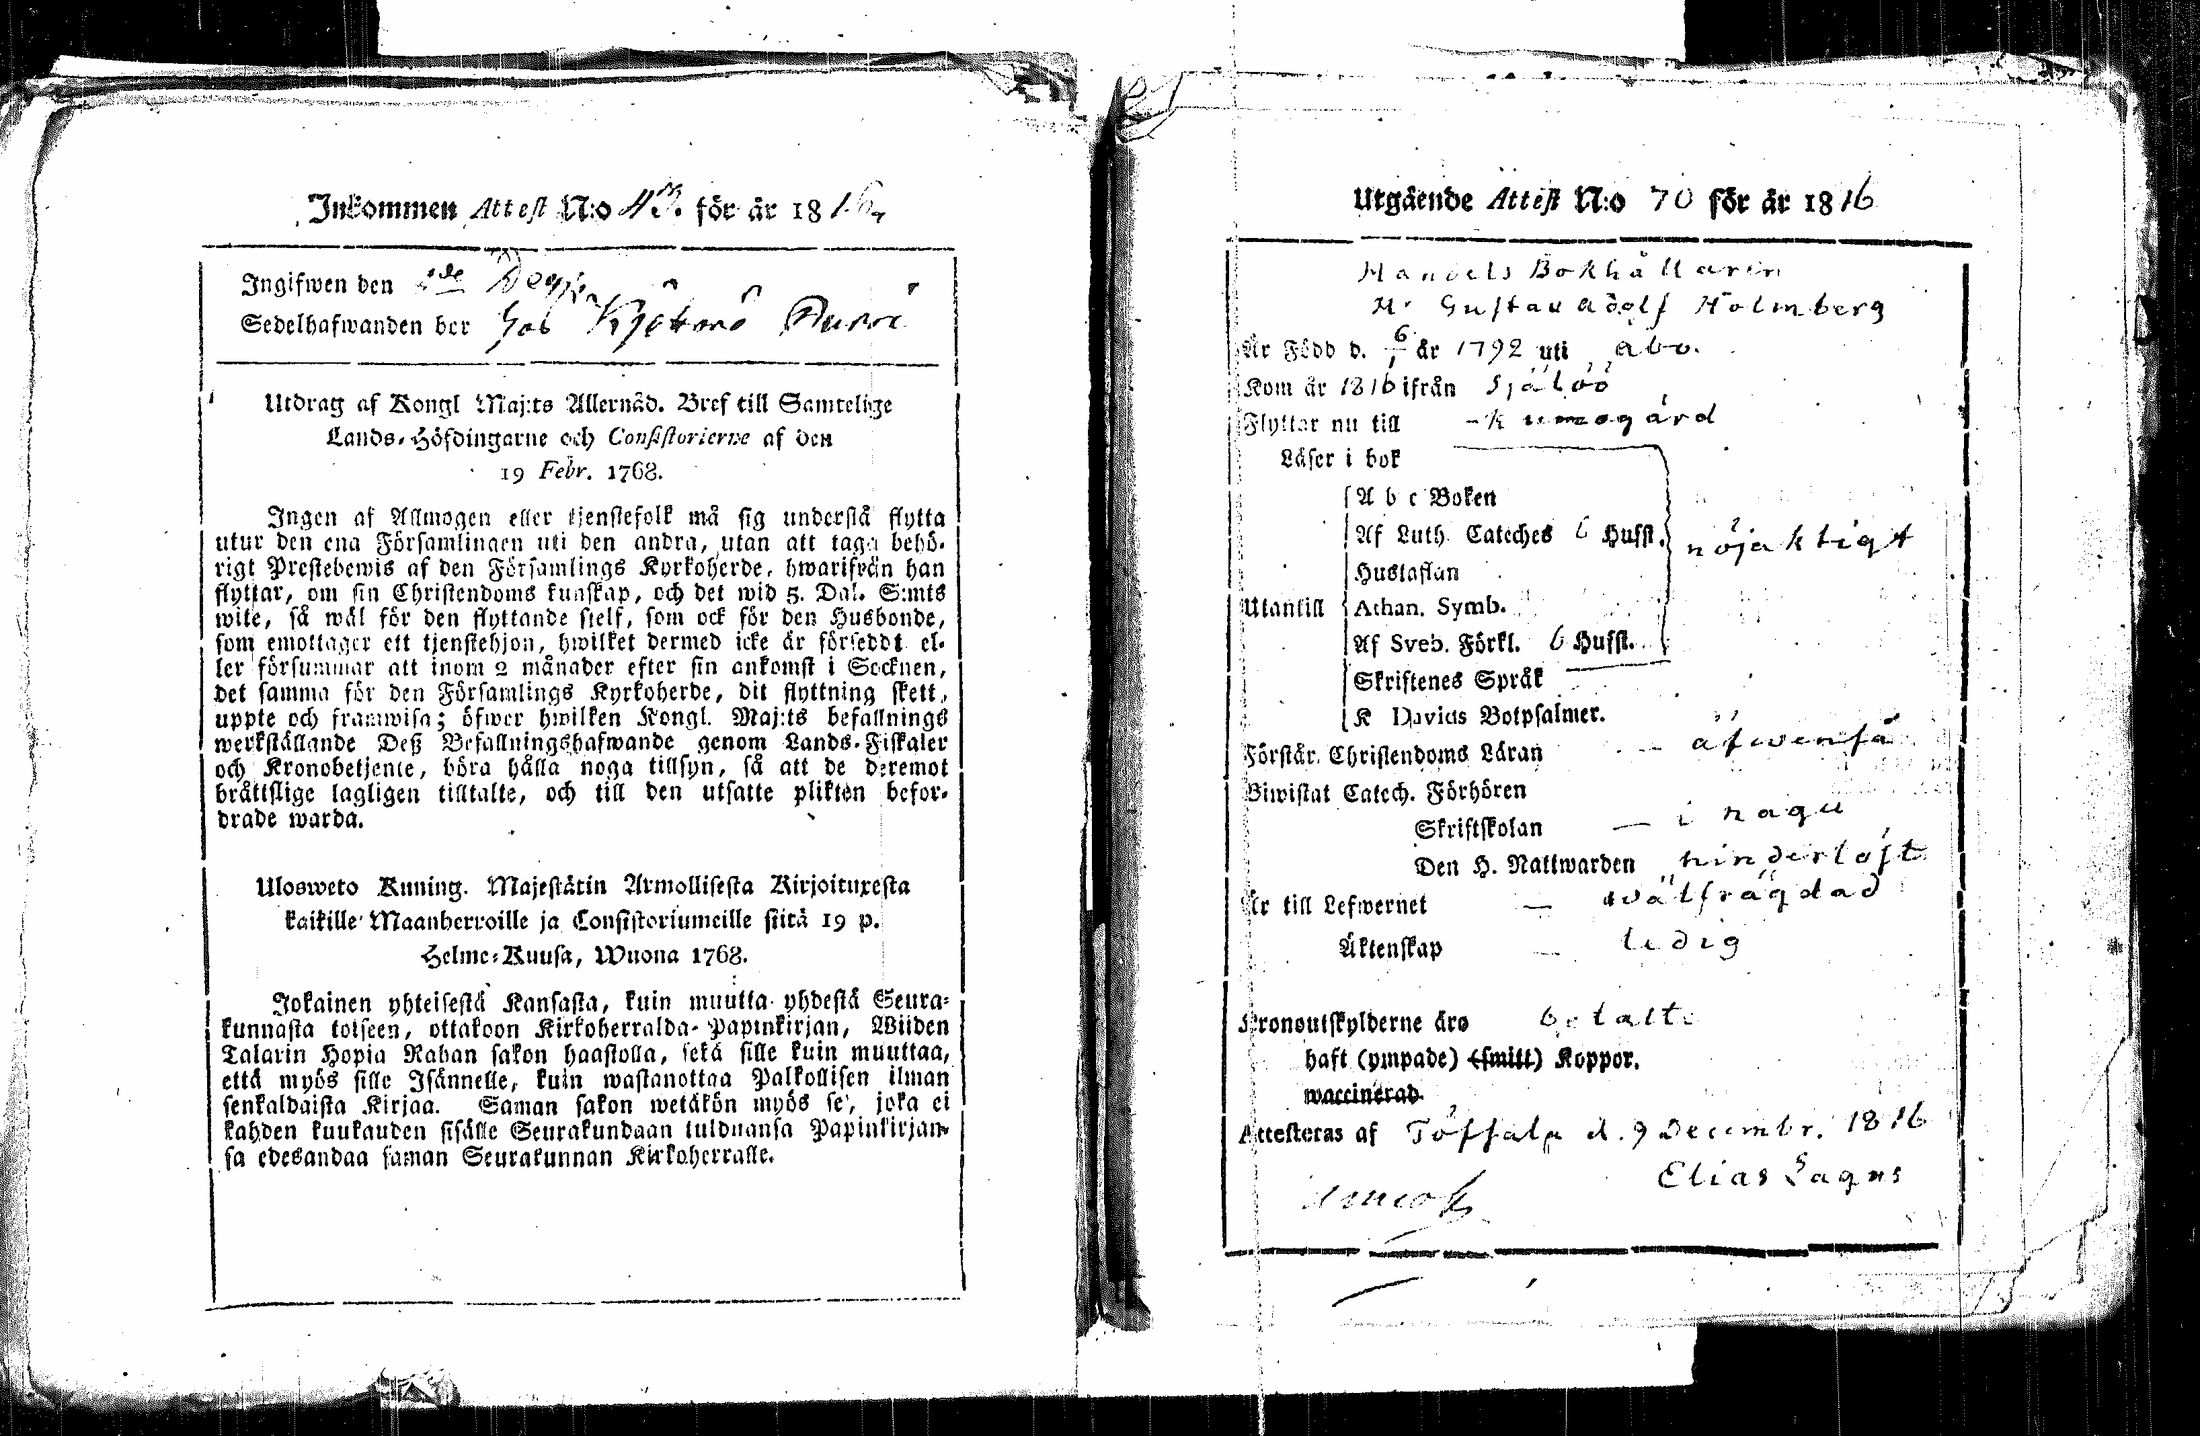 Inkommen Attest N:o 43. för år 1816.
Ingifwen den
Sedelhafwanden bor hos
Utdrag af Kongl Maj:ts Allernåd. Bref till Samtelige
Lands-Höfdingarne och Consistorierne af den
19 Febr. 1768.
Ingen af Allmogen eller tjenstefolk må sig understå flytta
utur den ena Församlingen uti den andra, utan att taga behö-
rigt Prestebewis af den Församlings Kyrkoherde, hwarifrån han
flyttar, om sin Christendoms kunskap, och det wid 5. Dal. S:mts
wite, så wäl för den flyttande sjelf, som ock för den Husbonde,
som emottager ett tjenstehjon, hwilket dermed icke är försedt el-
ler försummar att inom 2 månader efter sin ankomst i Socknen,
det samma för den Församlings Kyrkoherde, dit flyttning skett,
uppte och framwisa; öfwer hwilken Kongl. Maj:ts befallnings
werkställande Deß Befallningshafwande genom Lands-Fiskaler
och Kronobetjente, böra hålla noga tillsyn, så att de deremot
bråttslige lagligen tilltalte, och till den utsatte plikten befor-
drade warda.
Ulosweto Kuning. Majestätin Armollisesta Kirjoituxesta
kaikille Maanherroille ja Consistoriumeille siitä 19 p.
Helme-Kuusa, Wuona 1768.
Jokainen yhteisestä Kansasta, kuin muutta yhdestä Seura-
kunnasta toiseen, ottakoon Kirkoherralda Papinkirjan, Wiiden
Talarin Hopia Rahan sakon haastolla, sekä sille kuin muuttaa,
että myös sille Isännelle, kuin wastanottaa Palkollisen ilman
senkaldaista Kirjaa. Saman sakon wetäkön myös se, joka ei
kahden kuukauden sisälle Seurakundaan tulduansa Papinkirjan-
sa edesandaa saman Seurakunnan Kirkoherralle.
Utgående Attest N:o 70 för år 1816
Handels Bokhållaren
Hr Gustav Adolf Holmberg
Är Född d. 6/1 år 1792 uti Åbo.
Kom år 1816 ifrån Själöö
Flyttar nu till - Kumogård
Läser i bok
A b c Boken
Af Luth. Cateches 6 Hufst. nöjaktigt
Hustaflan
Utantill Athan. Symb.
Af Sveb. Förkl. 6 Hufst.
Skriftenes Språk
K Davids Botpsalmer.
Förstår Christendoms Läran - äfwenså
Biwistat Catech. Förhören
Skriftskolan - i nagu
Den H. Nattwarden hinderlöst
Är till Lefwernet - wälfrägdad
Äktenskap - ledig
Kronoutskylderne äro betalte
haft (ympade) (smitt) Koppor.
waccinerad.
Attesteras af Töfsala d. 9 Decembr. 1816
Elias Lagus